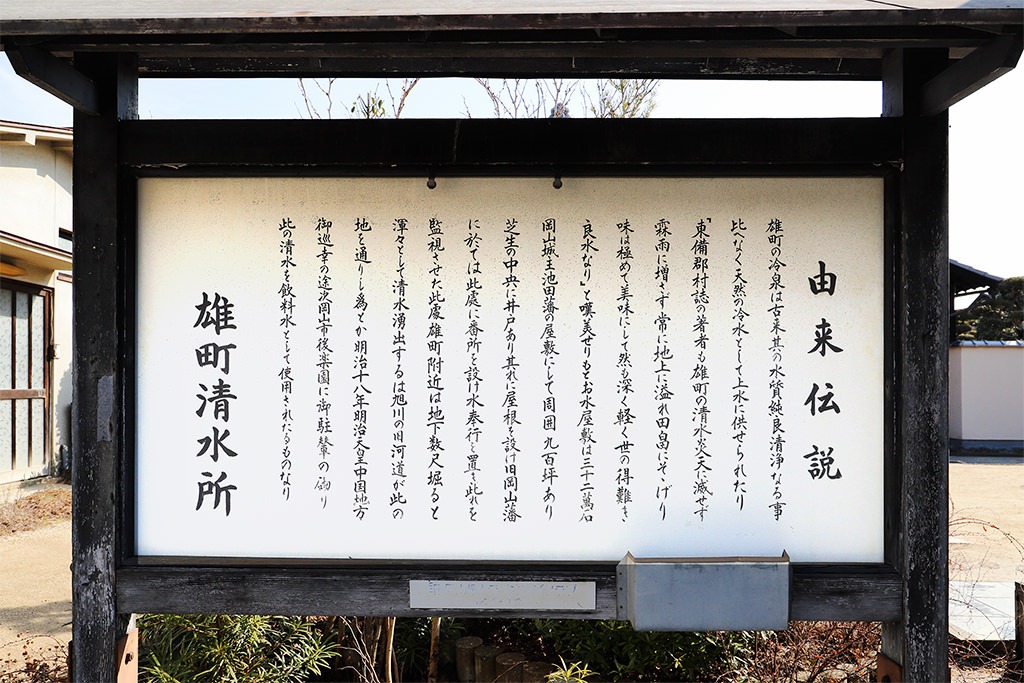 由来伝説
雄町の冷泉は古来其の水質純良清浄なる事
比べなく天然の冷水として上水に供せられたり
「東備郡村誌の著者も雄町の清水炎天に減せず
霖雨に増さず常に地上に溢れ田畠にそゝげり
味は極めて美味にして然も深く軽く世の得難き
良水なり」と嘆美せりもとお水屋敷は三十二萬石
岡山城主池田藩の屋敷にして周囲九百坪あり
芝生の中央に井戸あり其れに屋根を設け旧岡山藩
に於ては此處に番所を設け水奉行を置き此れを
監視させた此處雄町附近は地下数尺堀ると
渾々として清水湧出するは旭川の旧河道が此の
地を通りし為とか明治十八年明治天皇中国地方
御巡幸の途次岡山市後楽園に御駐輦の砌り
此の清水を飲料水として使用されたるものなり
雄町清水所